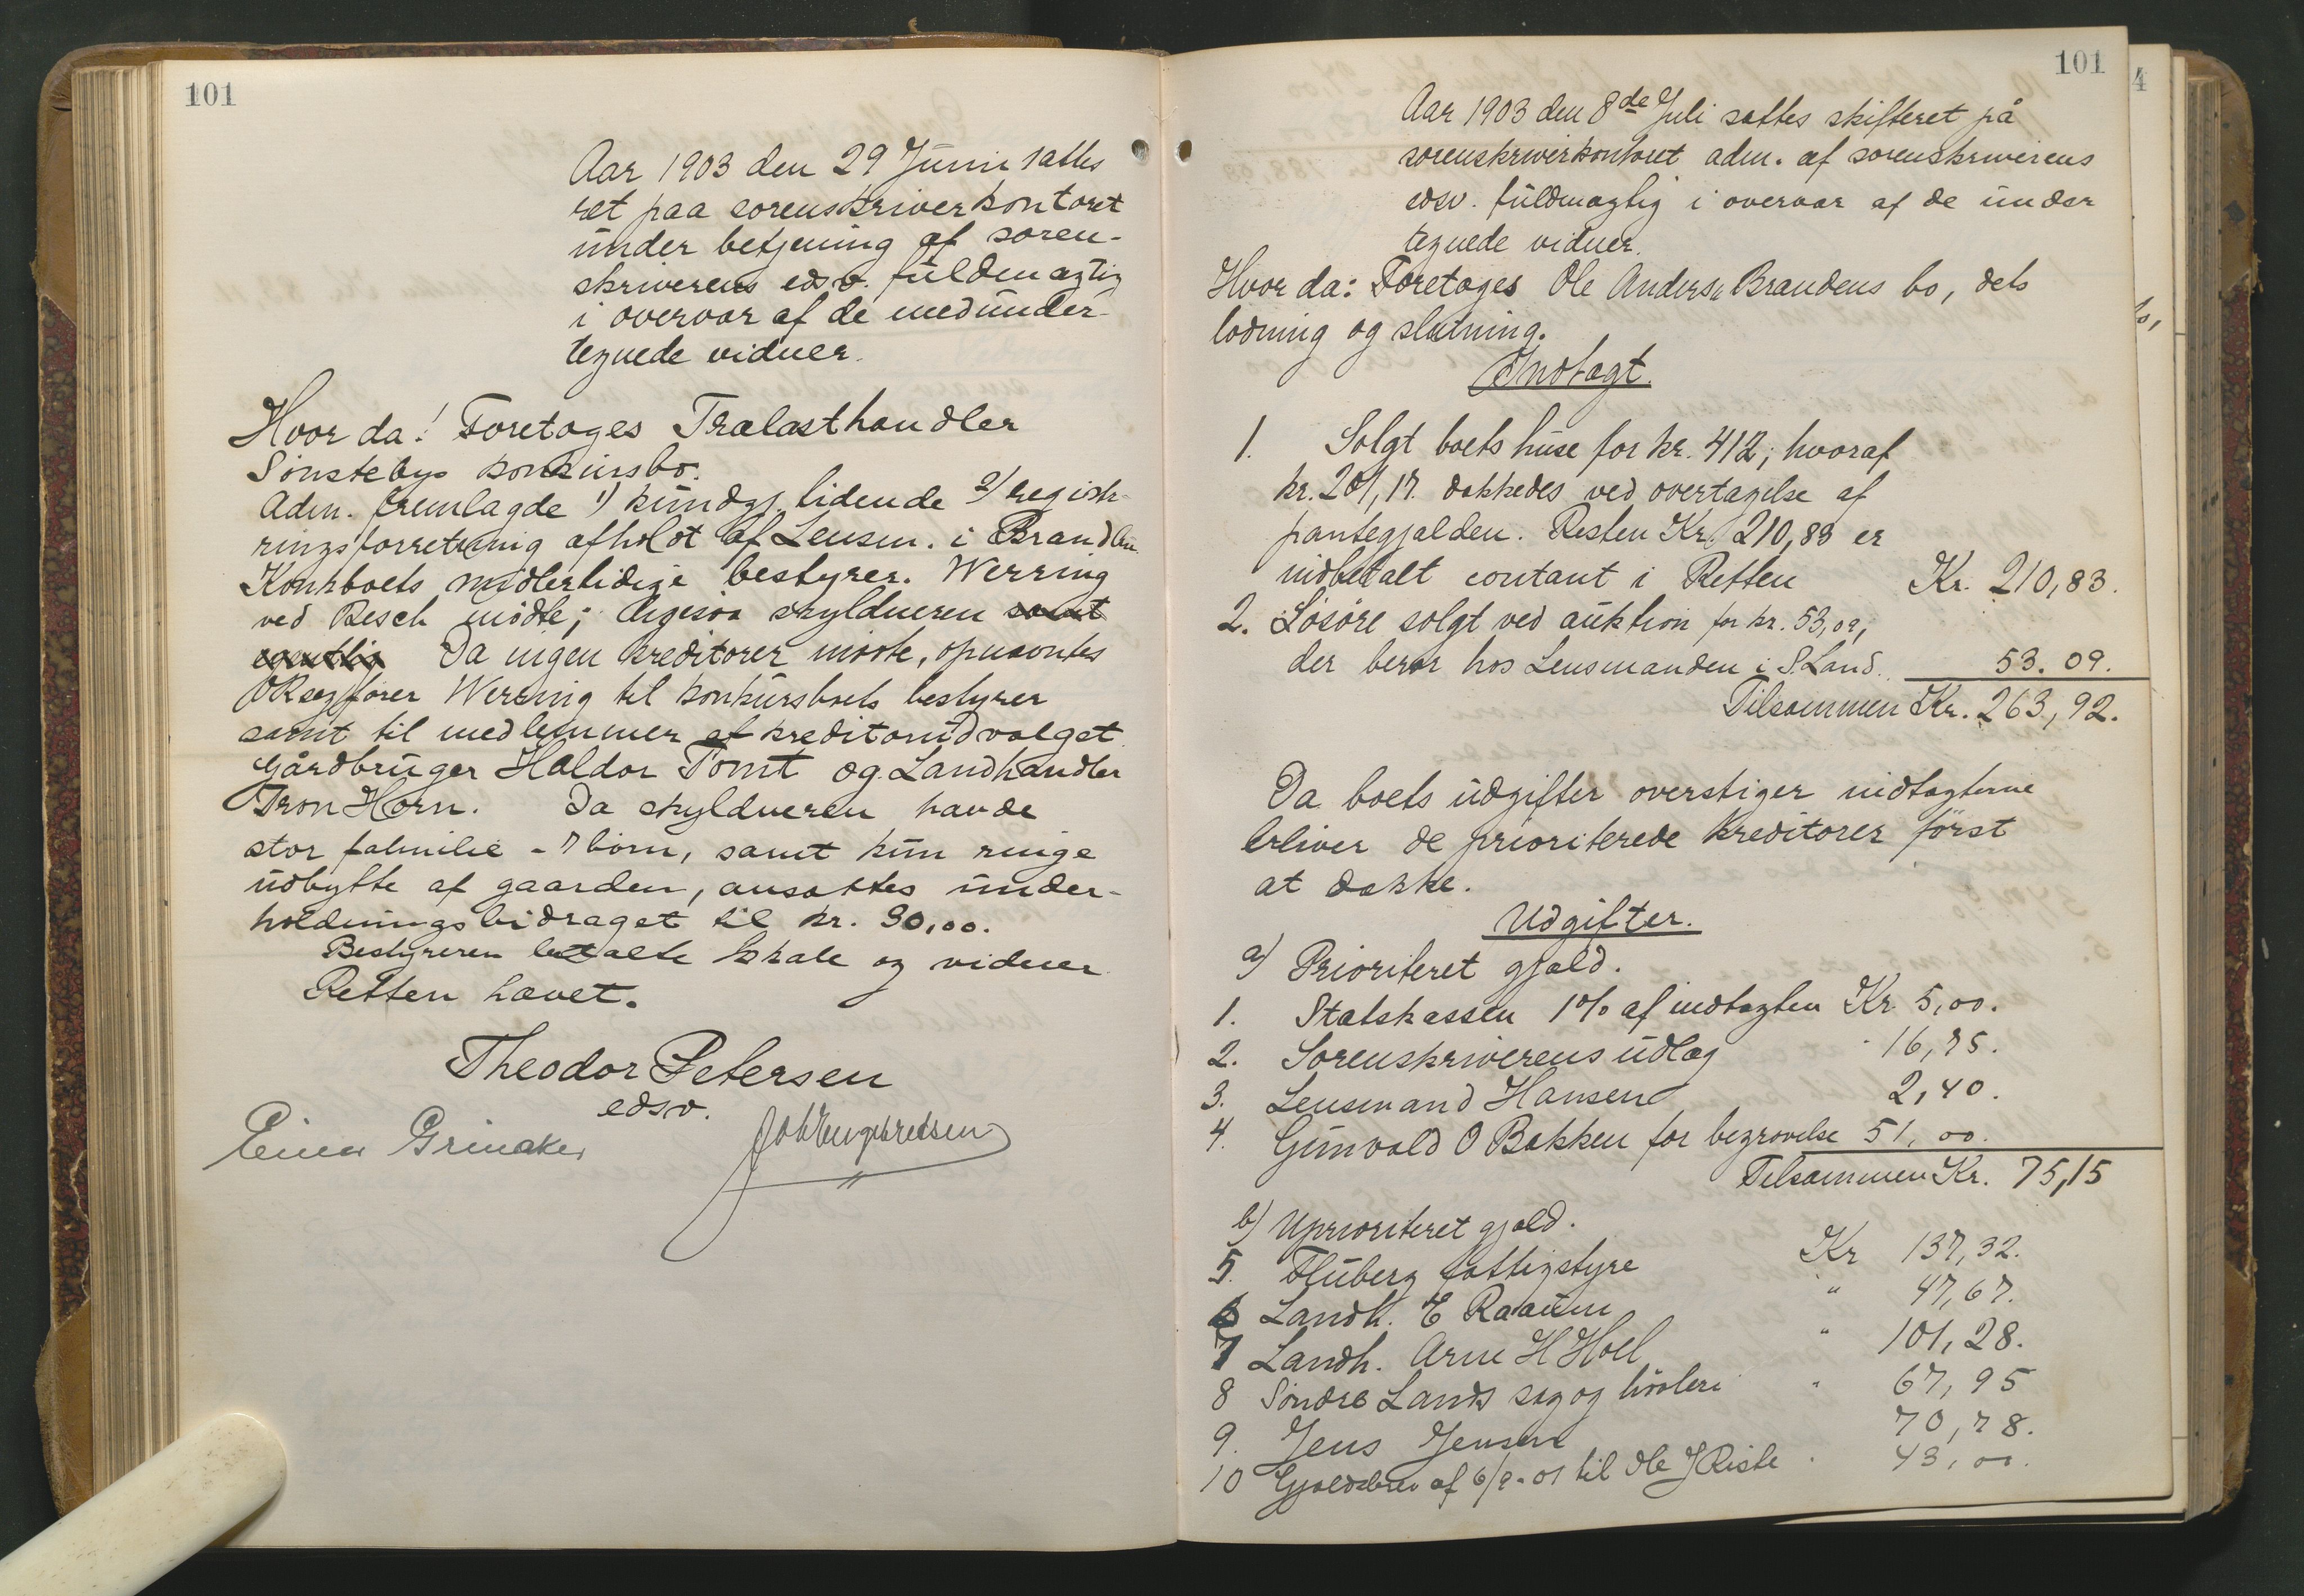 101
Aar 1903 den 29 Juni sattes
ret paa sorenskriverkontoret
under betjening af soren-
skriverens edsv. fuldmægtig
i overvær af de medunder-
tegnede vidner.
Hvor da! Foretoges Trælasthandler
Sønstebys konkursbo.
Adm. fremlagde 1) kundgj. tidende 2) registr-
ringsforretning afholdt af Lensm. i Brandbu
Konkboets midlertidige bestyrer. Werring
ved Resch mødte; ligesaa skyldneren samt
egentlig Da ingen kreditorer mødte, opnævntes
ORsagfører Werring til konkursboets bestyrer
samt til medlemmer af kreditorudvalget
Gårdbruger Haldor Tomt og Landhandler
Iron Horn. Da skyldneren havde
stor familie - 7 børn, samt kun ringe
udbytte af gaarden, ansattes under-
holdningsbidraget til kr. 30,00.
Bestyreren betalte lokale og vidner
Retten hævet.
Theodor Petersen
edsv.
Einar Grinaker Joh Engebretsen
101
4
Aar 1903 den 8de Juli sattes skifteret på
sorenskriverkontoret adm. af sorenskriverens
edsv. fuldmægtig i overvær af de under
tegnede vidner.
Hvor da: Foretoges Ole Anders. Brandens bo, dets
lodning og slutning.
bo,
Indtægt.
1. Solgt boets huse for kr. 412; hvoraf
kr. 201,17. dækkedes ved overtagelse af
pantegjælden. Resten Kr. 210,83 er
indbetalt contant i Retten Kr. 210,83.
2. Løsøre solgt ved auktion for kr. 53,09,
der beror hos Lensmanden i S. Land. 53.09.
Tilsammen Kr. 263,92.
Da boets udgifter overstiger indtægterne
bliver de prioriterede kreditorer først
at dække.
Udgifter.
a) Prioriteret gjæld.
1. Statskassen 1% af indtægten Kr 5,00.
2. Sorenskriverens udlæg " 16,75.
3. Lensmand Hansen 2,40.
4. Gunvald O Bakken for begravelse 51,00.
Tilsammen Kr. 75,15
b) Uprioriteret gjæld.
5. Fluberg fattigstyre Kr 137,32.
6 Landh. E Raaum " 47,67.
7 Landh. Arne H Hoel " 101,28.
8 Søndre Lands sag og høvleri " 67,95
9. Jens Jensen 70,78.
10 Gjældsbrev af 6/9-01 til Ole J Riste " 43,00.